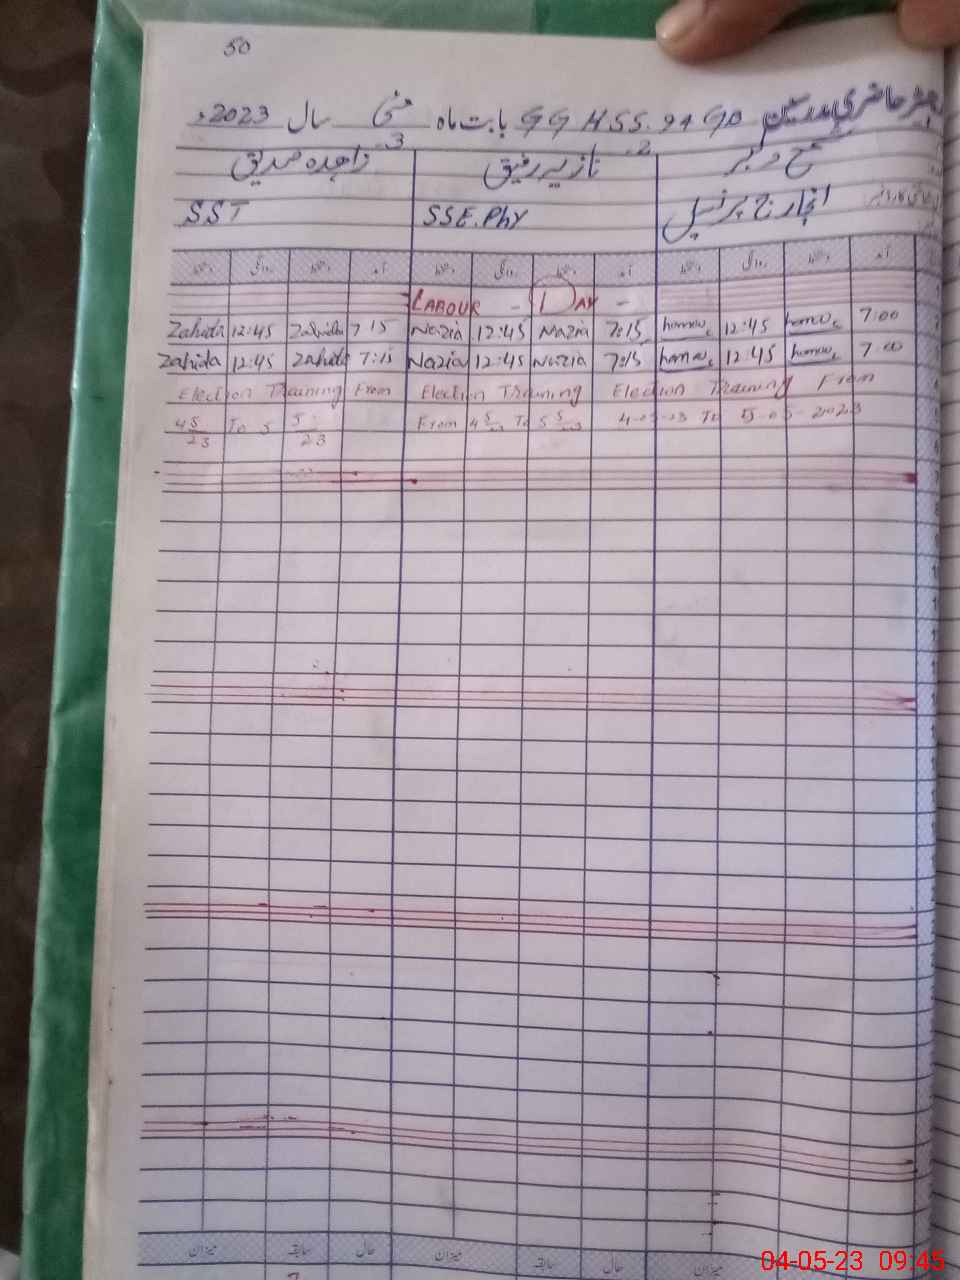 50
رجسٹر حاضری مدرسین GGHSS. 94 GD بابت ماہ مئی سال 2023ء
2. 3.
انچارج پرنسپل نازیہ رفیق زاھدہ صدیق
SSE.Phy SST
آمد دستخط روانگی دستخط آمد دستخط روانگی دستخط آمد دستخط روانگی دستخط
LABOUR - DAY -
Zahida 12:45 Zahida 7:15 Nazia 12:45 Nazia 7:15 12:45 7:00
Zahida 12:45 Zahida 7:15 Nazia 12:45 Nazia 7:15 12:45 7:00
Election Training From Election Training Election Training From
4 5/23 To 5 5/23 From 4 5/23 To 5 5/23 4-05-23 To 5-05-2023
میزان سابقہ حال میزان سابقہ حال میزان
04-05-23 09:45